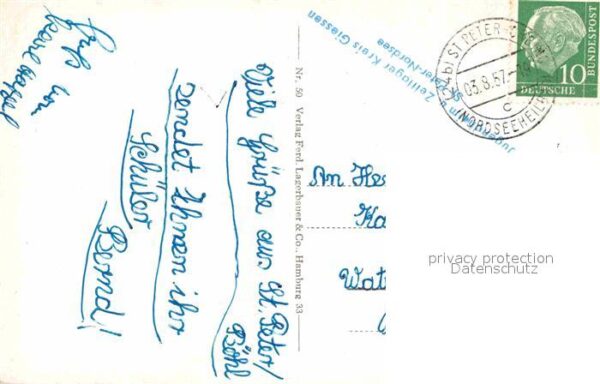 Viele Grüße aus St. Peter/
Böhl
sendet Ihnen ihr
Schüler
Bernd!
Gruß von
Nr. 50 Verlag Ferd. Lagerbauer & Co., Hamburg 33
An He
Ka
Wat
Jugend
u. Zeltlager Kreis Giessen
St. Peter-Nordsee
(24b) ST PETER
03.8.57
c
NORDSEEHEIL
DEUTSCHE
BUNDESPOST
10
privacy protection
Datenschutz